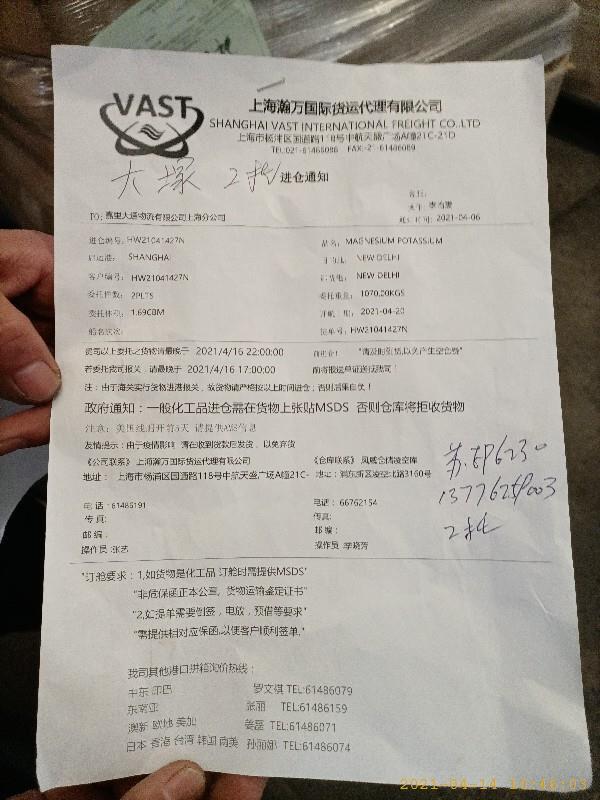 VAST
上海瀚万国际货运代理有限公司
SHANGHAI VAST INTERNATIONAL FREIGHT CO.,LTD
上海市杨浦区国道路118号中航天盛广场A幢21C-21D
TEL:021-61486086 FAX:-21-61486089
大塚 2托 进仓通知
TO: 嘉里大通物流有限公司上海分公司
时间: 2021-04-06
进仓编号: HW21041427N
品名: MAGNESIUM POTASSIUM
启运港: SHANGHAI
NEW DELHI
客户编号: HW21041427N
NEW DELHI
委托件数: 2PLTS
委托重量: 1070.00KGS
委托体积: 1.69CBM
2021-04-20
船名航次:
提单号: HW21041427N
贵司以上委托之货物请最晚于 2021/4/16 22:00:00
"请及时到货,以免产生空仓费"
若委托我司报关，请最晚于 2021/4/16 17:00:00
前将报运单证送抵我司！
注：由于海关实行货物进港报关，故货物请严格按以上时间进仓；否则后果自负！
政府通知：一般化工品进仓需在货物上张贴MSDS 否则仓库将拒收货物
注意：美国线开开前5天 请提供AMS信息
友情提示：由于疫情影响 请在收到货款后发货，以免弃货
《公司联系》上海瀚万国际货运代理有限公司
《仓库联系》凤威仓储凌空库
地址： 上海市杨浦区国道路118号中航天盛广场A幢21C-
地址：浦东新区凌空北路3160号
苏.
13776259003
2托
电话：61486191
电话：66762154
传真:
传真:
邮编：
邮编：
操作员：张艺
操作员：李晓芳
"订舱要求：1,如货物是化工品 订舱时需提供MSDS"
"非危保函正本公章，货物运输鉴定证书"
"2,如提单需要倒签，电放，预借等要求"
"需提供相对应保函,以便客户顺利签单."
我司其他港口拼箱询价热线：
中东 印巴 罗文祺 TEL:61486079
东南亚 张丽 TEL:61486159
澳新 欧地 美加 姜磊 TEL:61486071
日本 香港 台湾 韩国 南美 孙丽娜 TEL:61486074